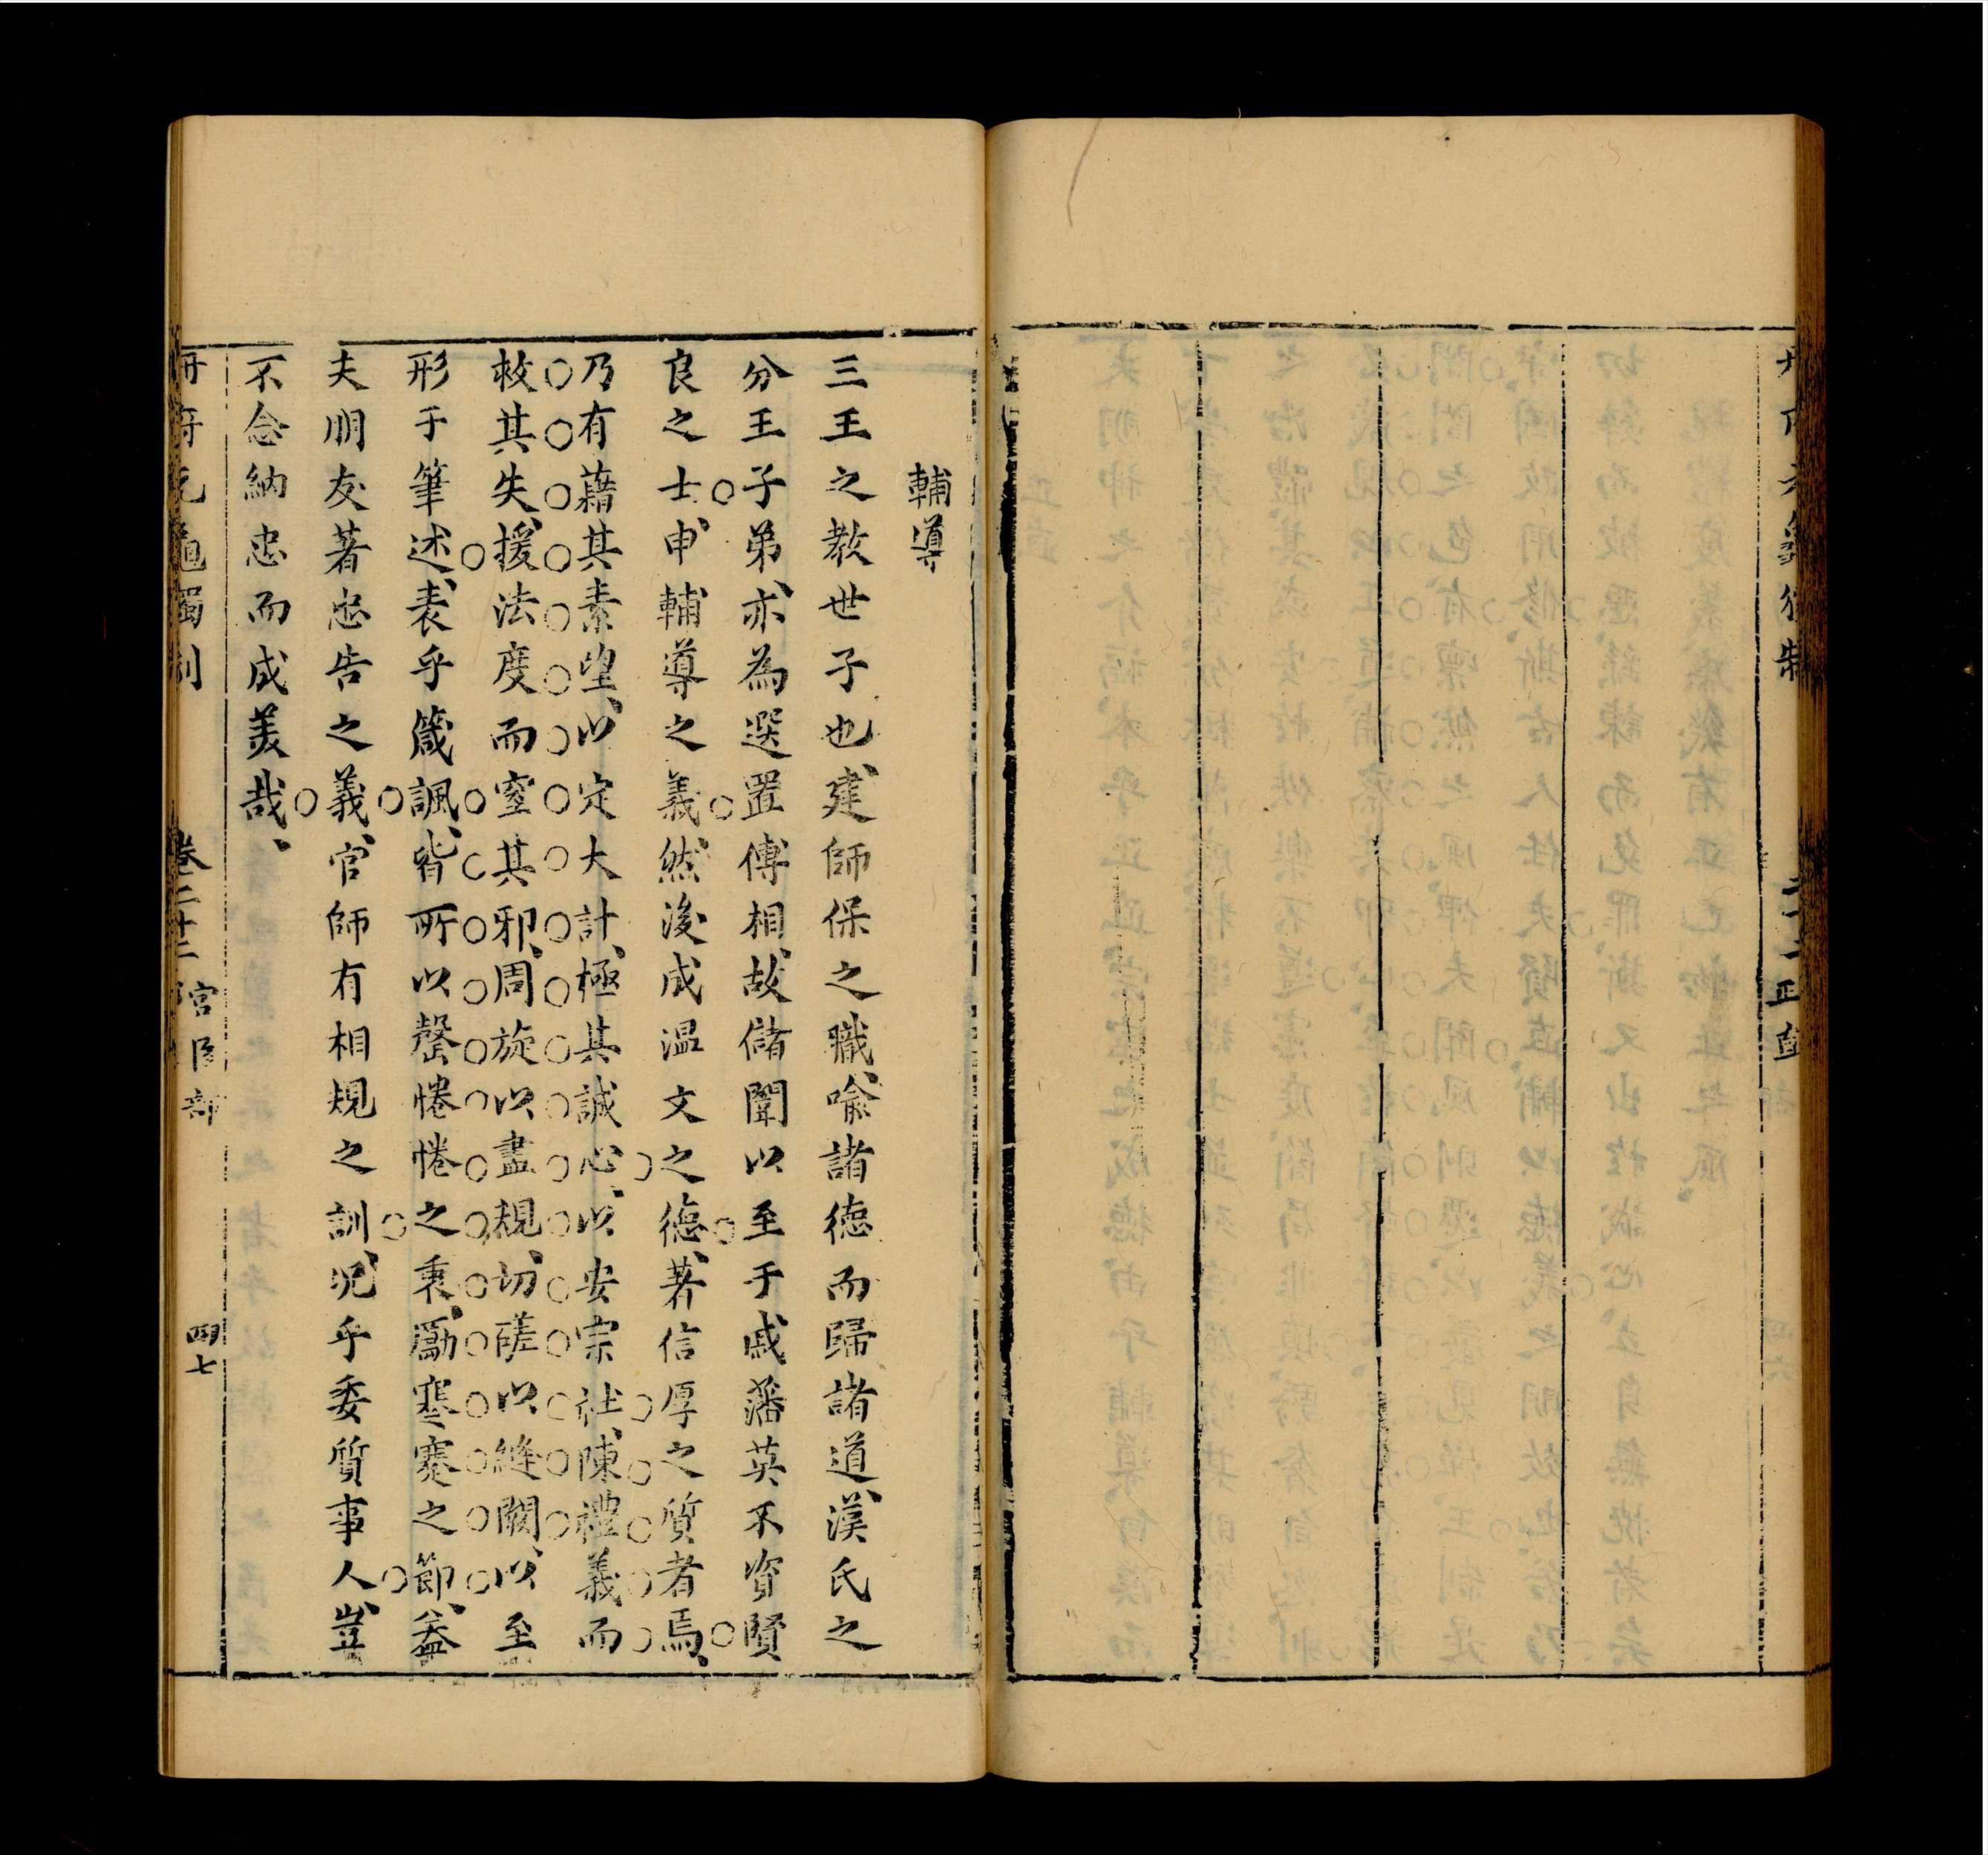 正直
輔導
三王之教世子也建師保之職喻諸德而歸諸道漢氏之
分王子弟亦為選置傅相故儲闈以至于戚藩英不資賢
良之士申輔導之義然後成温文之德著信厚之質者焉
乃有藉其素望以定大計極其誠心以安宗社陳禮義而
救其失援法度而窒其邪周旋以盡規切磋以縫闕以至
形于筆述表乎箴諷皆所以罄惓惓之衷勵蹇蹇之節益
夫朋友著忠告之義官師有相規之訓况乎委質事人豈
不念納忠而成美哉
冊府元龜獨制 卷二十二 宮臣部 四七